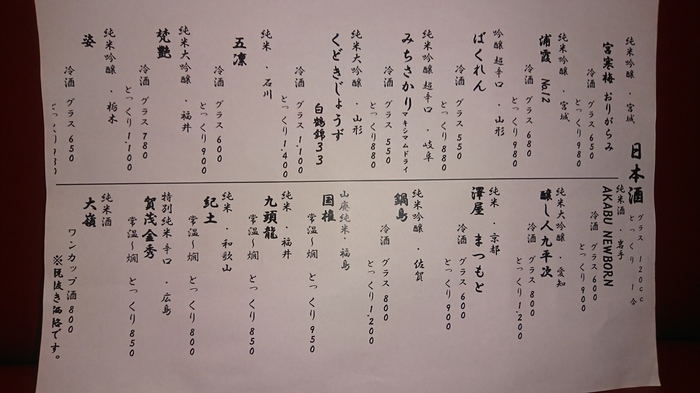 日本酒
グラス 120cc
とっくり 1合
純米吟醸 ・ 宮城
宮寒梅 おりがらみ
冷酒 グラス 650
とっくり 980
純米吟醸 ・ 宮城
浦霞 No.12
冷酒 グラス 680
とっくり 980
吟醸 超辛口 ・ 山形
ばくれん
冷酒 グラス 550
とっくり 880
純米吟醸 超辛口 ・ 岐阜
みちさかり マキシマムドライ
冷酒 グラス 550
とっくり 880
純米大吟醸 ・ 山形
くどきじょうず 白鶴錦33
冷酒 グラス 1,100
とっくり 1,400
純米 ・ 石川
五凛
冷酒 グラス 600
とっくり 900
純米大吟醸 ・ 福井
梵 艶
冷酒 グラス 780
とっくり 1,100
純米吟醸 ・ 栃木
姿
冷酒 グラス 650
とっくり
純米酒 ・ 岩手
AKABU NEWBORN
冷酒 グラス 600
とっくり 900
純米大吟醸 ・ 愛知
醸し人九平次
冷酒 グラス 800
とっくり 1,200
純米 ・ 京都
澤屋 まつもと
冷酒 グラス 600
とっくり 900
純米吟醸 ・ 佐賀
鍋島
冷酒 グラス 800
とっくり 1,200
山廃純米 ・ 福島
国権
常温〜燗 とっくり 950
純米 ・ 福井
九頭龍
常温〜燗 とっくり 850
純米 ・ 和歌山
紀土
常温〜燗 とっくり 800
特別純米 辛口 ・ 広島
賀茂金秀
常温〜燗 とっくり 850
純米酒
大嶺
ワンカップ酒 800
※税抜き価格です。